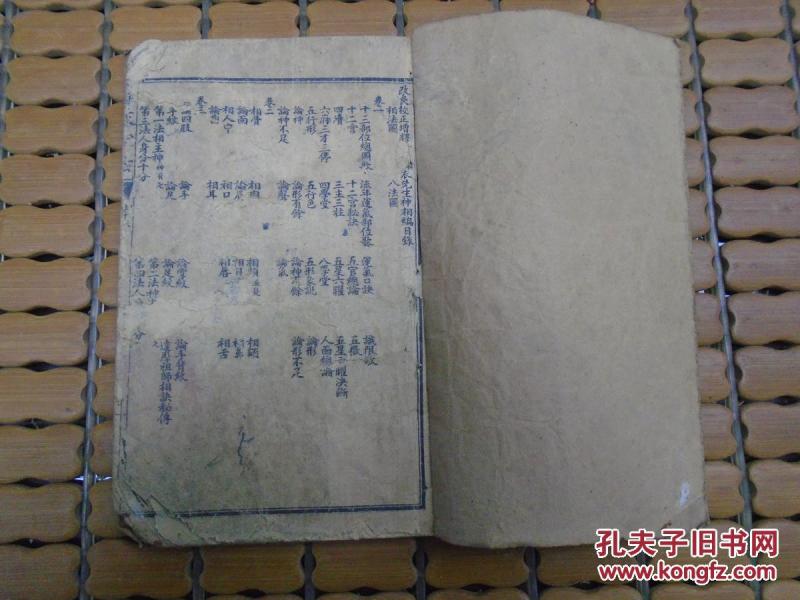 改良校正增釋 衣先生神相編目錄
卷一 相法圖 八法圖
十三部位總圖歌 流年運氣部位歌 運氣口訣 識限歌
十二宮 十二宮秘訣 五官總論 五嶽
四瀆 三主三柱 五星六曜 五星六曜決斷
六府三才三停 四學堂 八學堂 人面總論
五行形 五行色 五形象說 論形
論神 論形有餘 論神有餘 論形不足
論神不足 論聲 論氣
卷二
相骨 相肉 相頭
論面 論眉 相目 相鼻
相人中 相口 相唇 相舌
論齒 相耳
卷三
論四肢 論手 論掌紋 論手背紋
手紋 論足 論足紋 達磨祖師相訣秘傳
第一法相主神 第二法神
第三法人身分十分 第四法人
孔夫子旧书网
www.kongfz.com